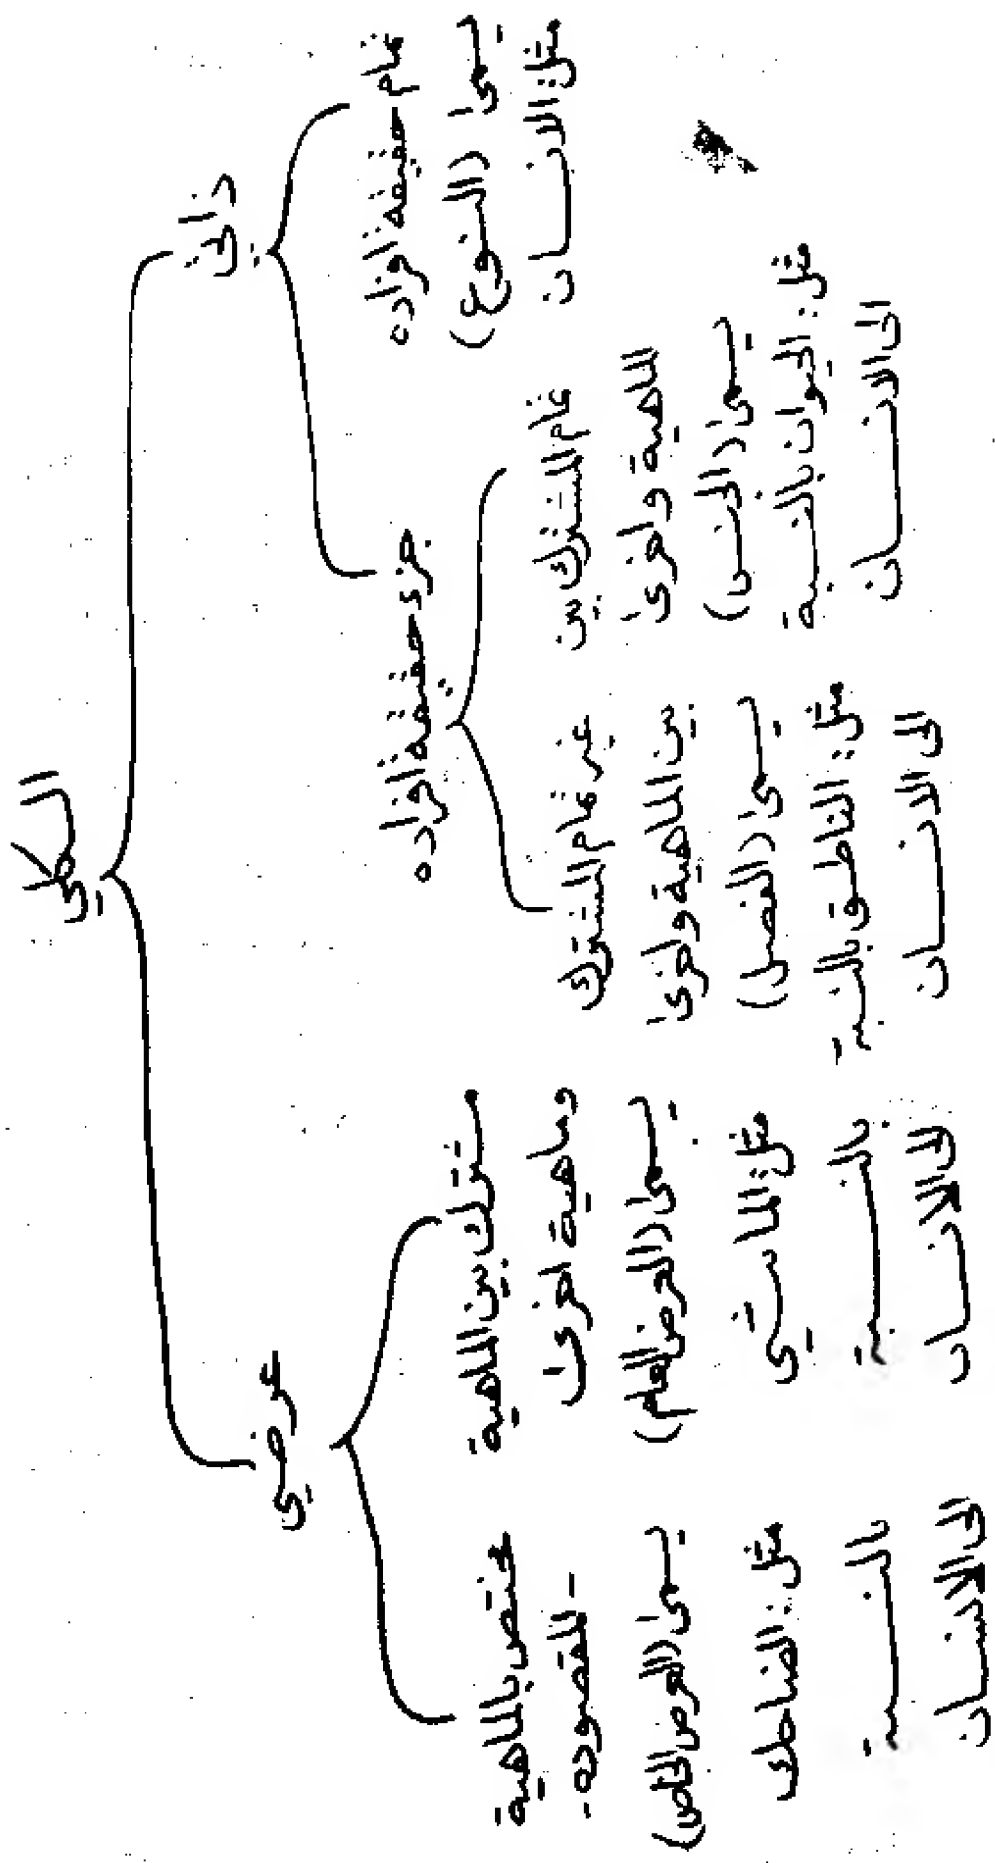 الكلي
ذاتي
تمام حقيقة افراده
يسمى (النوع)
مثل: الانسان
جزء حقيقة افراده
تمام المشترك بين
الماهية واخرى
يسمى (الجنس)
مثل: الحيوان بالنسبة
الى الانسان
غير تمام المشترك
بين الماهية واخرى
يسمى (الفصل)
مثل: الناطق بالنسبة
الى الانسان
عرضي
مشترك بين الماهية
وماهية اخرى
يسمى (العرض العام)
مثل: الماشي
بالنسبة
الى الانسان
مختص بالماهية
- المقصوده -
يسمى (العرض الخاص)
مثل: الضاحك
بالنسبة
الى الانسان